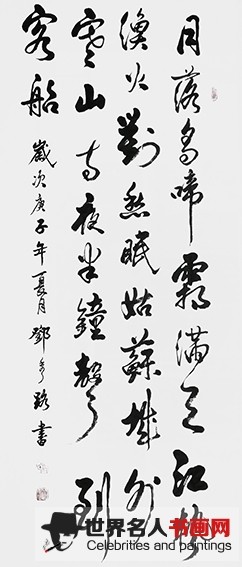 月落烏啼霜滿天江楓
漁火對愁眠姑蘇城外
寒山寺夜半鐘聲到
客船
歲次庚子年夏月鄧路書
世界名人书画网
Celebrities and paintings